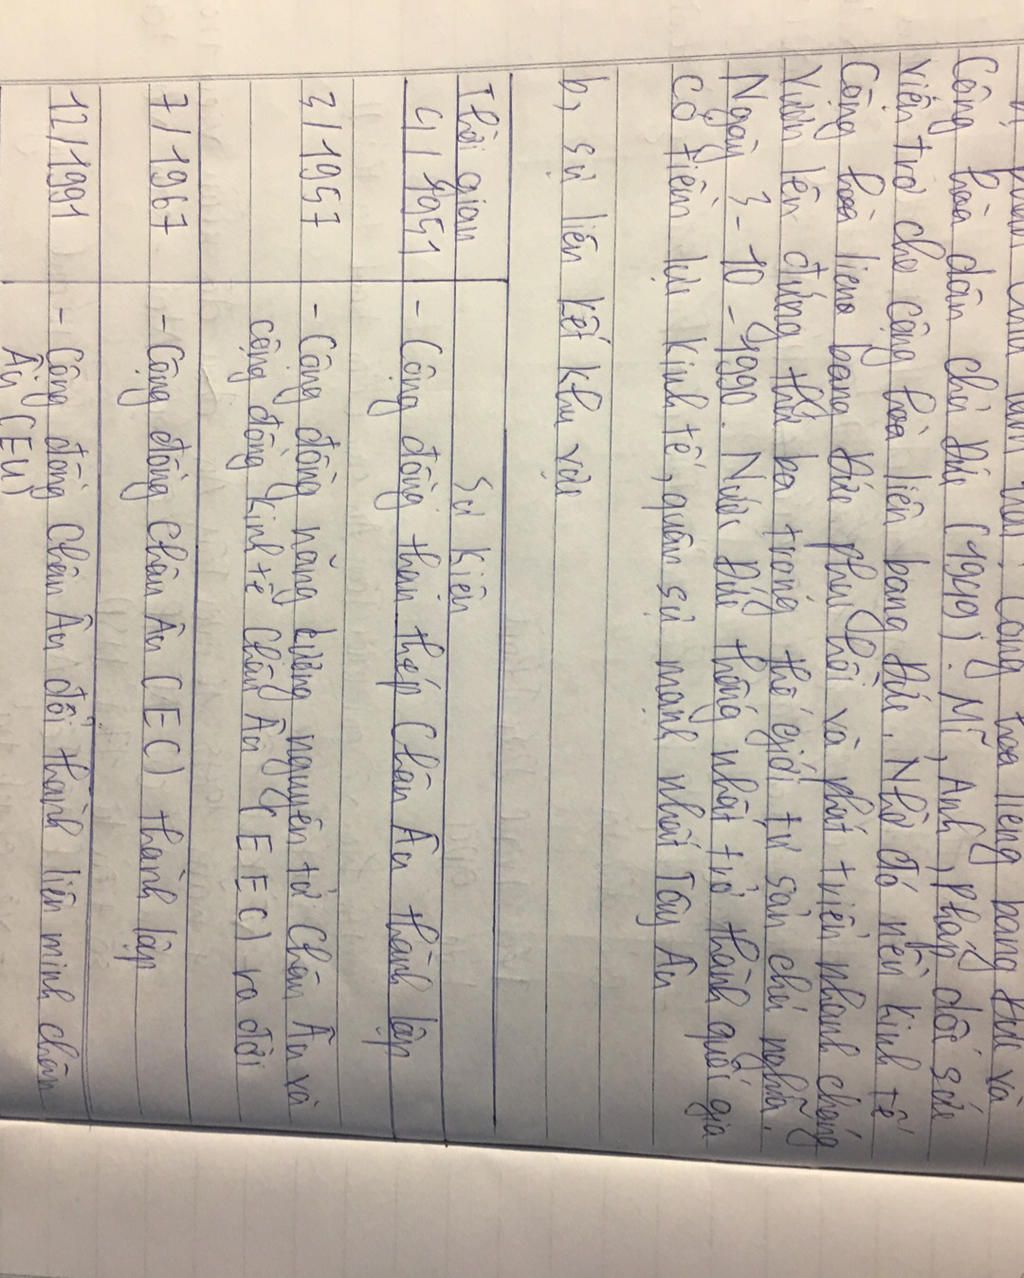 bị phân chia làm hai, Cộng hoà liêng bang Đức và
Công hòa dân chủ Đức (1949). Mĩ, Anh, Pháp dốc sức
viên trợ cho cộng hoà liên bang Đức. Nhờ đó nền kinh tế
Công hoà lieng bang Đức phụ hồi và phát triển nhanh chóng
vươn lên đứng thứ ba trong thế giới tư sản chủ nghĩa.
Ngày 3-10-1990. Nước Đức thống nhất trở thành quốc gia
có tiềm lực kinh tế, quân sự mạnh nhất Tây Âu
b, sự liên kết khu vực
Thời gian Sự kiện
4/1951 - Công đồng than thép Châu Âu thành lập
3/1957 - Công đồng năng lượng nguyên tử Châu Âu và
cộng đồng kinh tế Châu Âu (EEC) ra đời
7/1967 - Cộng đồng Châu Âu (EC) thành lập
12/1991 - Công đồng Châu Âu đổi thành liên minh châu
Âu (EU)